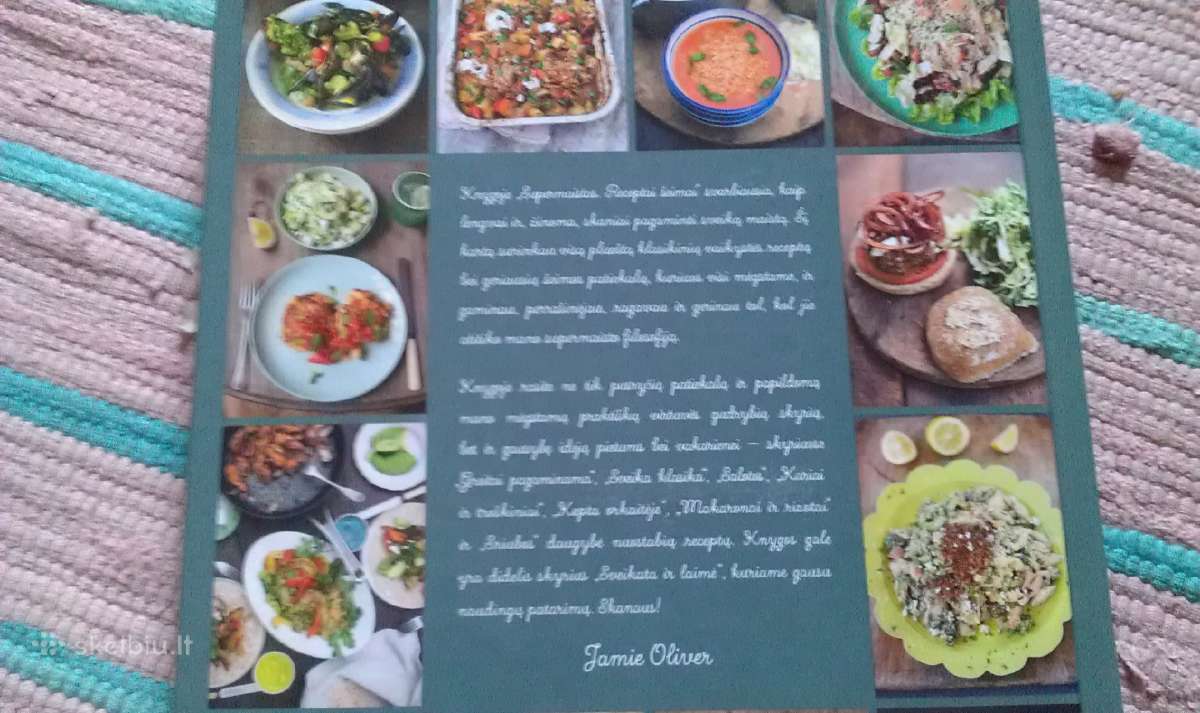 Knygoje „Supermaistas. Receptai šeimai“ svarbiausia, kaip
lengvai ir, žinoma, skaniai pagaminti sveiką maistą. Šį
kartą surinkau visą pluoštą klasikinių vaikystės receptų
bei geriausių šeimos patiekalų, kuriuos visi mėgstame, ir
gaminau, perrašinėjau, ragavau ir gerinau tol, kol jie
atitiko mano supermaisto filosofiją.
Knygoje rasite ne tik pusryčių patiekalų ir papildomą
mano mėgstamų praktiškų virtuvės gudrybių skyrių,
bet ir gausybę idėjų pietums bei vakarienei – skyriuose
„Greitai pagaminama“, „Sveika klasika“, „Salotos“, „Kariai
ir troškiniai“, „Kepta orkaitėje“, „Makaronai ir rizotai“
ir „Sriubos“ daugybė nuostabių receptų. Knygos gale
yra didelis skyrius „Sveikata ir laimė“, kuriame gausu
naudingų patarimų. Skanaus!
Jamie Oliver
skelbiu.lt